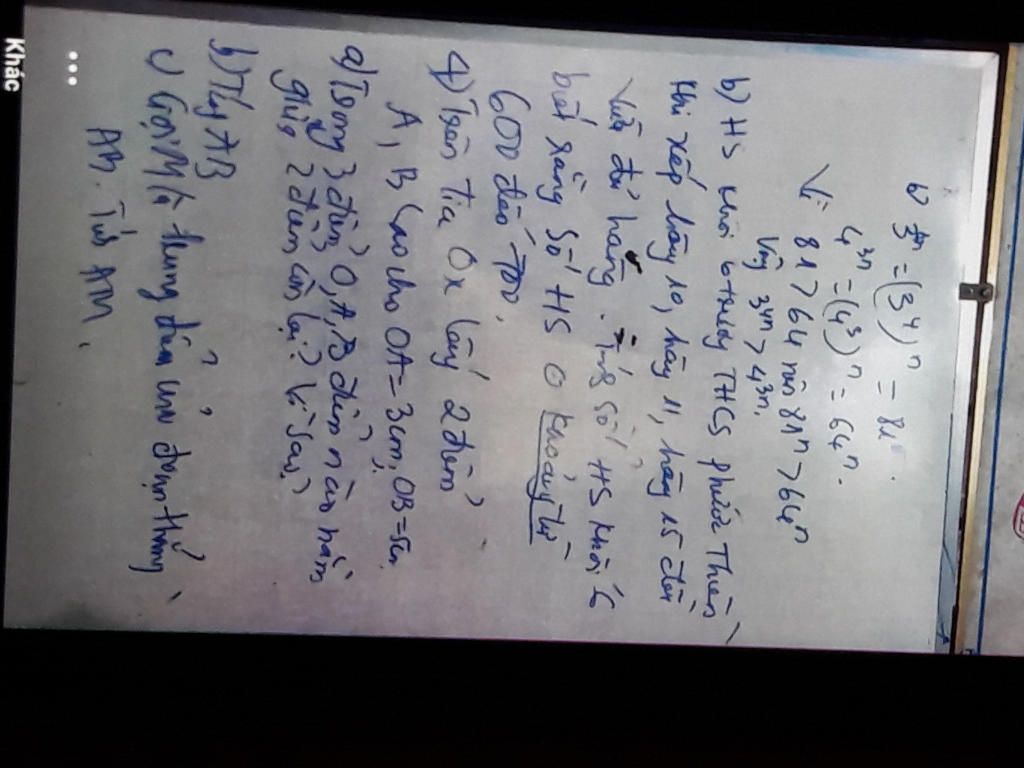 b) 3⁴ⁿ = (3⁴)ⁿ = 81ⁿ.
4³ⁿ = (4³)ⁿ = 64ⁿ.
Vì 81 > 64 nên 81ⁿ > 64ⁿ
Vậy 3⁴ⁿ > 4³ⁿ.
b) HS khối 6 trường THCS phước Thiền
khi xếp hàng 10, hàng 11, hàng 15 đều
vừa đủ hàng. Tính số HS khối 6
biết rằng số HS ở khoảng từ
600 đến 700.
4) Trên tia Ox lấy 2 điểm
A, B sao cho OA = 3cm, OB =
a) Trong 3 điểm O, A, B điểm nào nằm
giữa 2 điểm còn lại? Vì sao?
b) Tính AB
c) Gọi M là trung điểm của đoạn thẳng
AB. Tính AM.
Khác